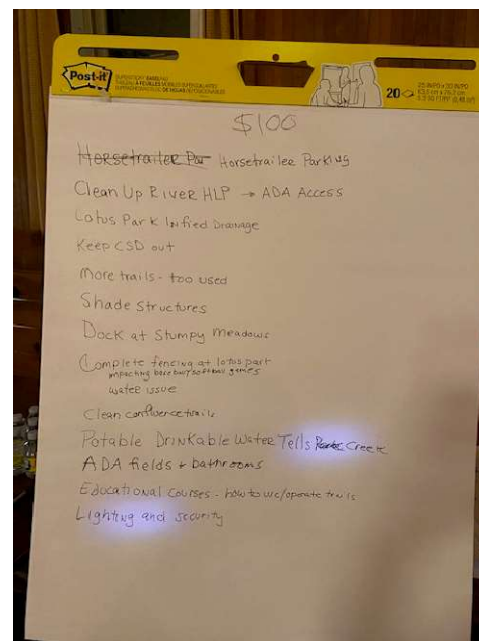 Post-it
SUPERSTICKY EASEL PAD
TABLEAU À FEUILLES MOBILES SUPERCOLLANTES
20
$100
Horsetrailer Par Horsetrailer Parking
Clean Up River HLP → ADA Access
Lotus Park Infield Drainage
Keep CSD out
More trails - too used
Shade Structures
Dock at Stumpy Meadows
Complete fencing at lotus park
impacting baseball/softball games
water issue
Clean confluence trails
Potable Drinkable Water Tells Creek
ADA fields + bathrooms
Educational Courses - how to use/operate trails
Lighting and security